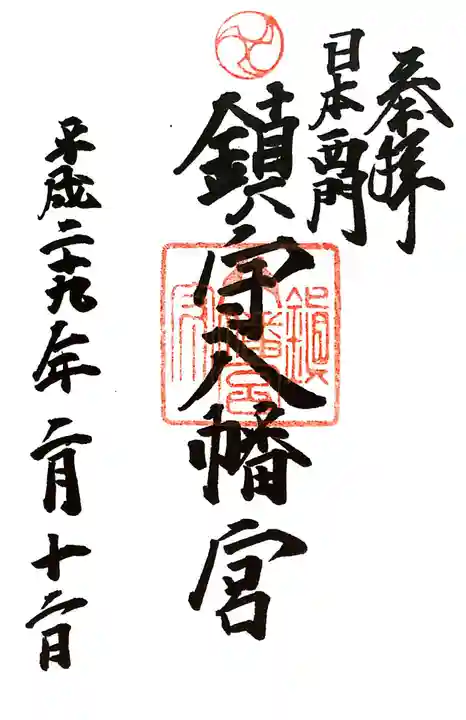 奉拝
日本西門
鎮守八幡宮
平成二十九年二月十二日